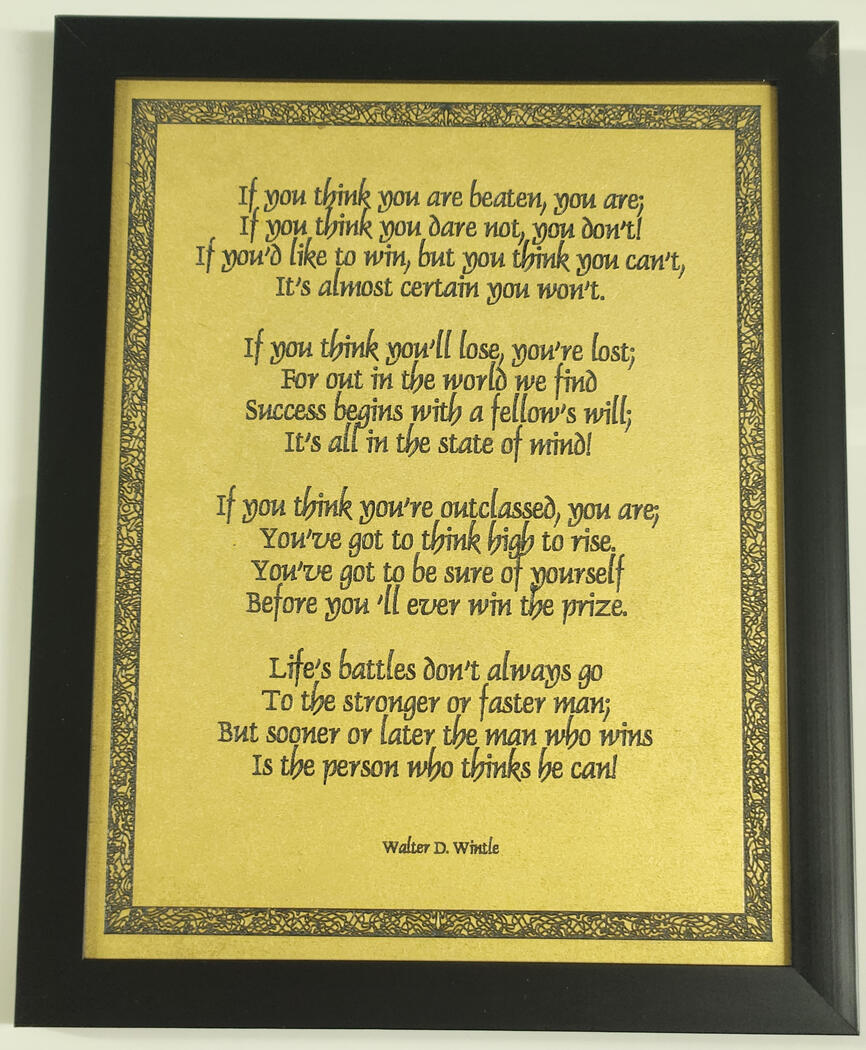 If you think you are beaten, you are;
If you think you dare not, you don't!
If you'd like to win, but you think you can't,
It's almost certain you won't.
If you think you'll lose, you're lost;
For out in the world we find
Success begins with a fellow's will;
It's all in the state of mind!
If you think you're outclassed, you are;
You've got to think high to rise.
You've got to be sure of yourself
Before you 'll ever win the prize.
Life's battles don't always go
To the stronger or faster man;
But sooner or later the man who wins
Is the person who thinks he can!
Walter D. Wintle